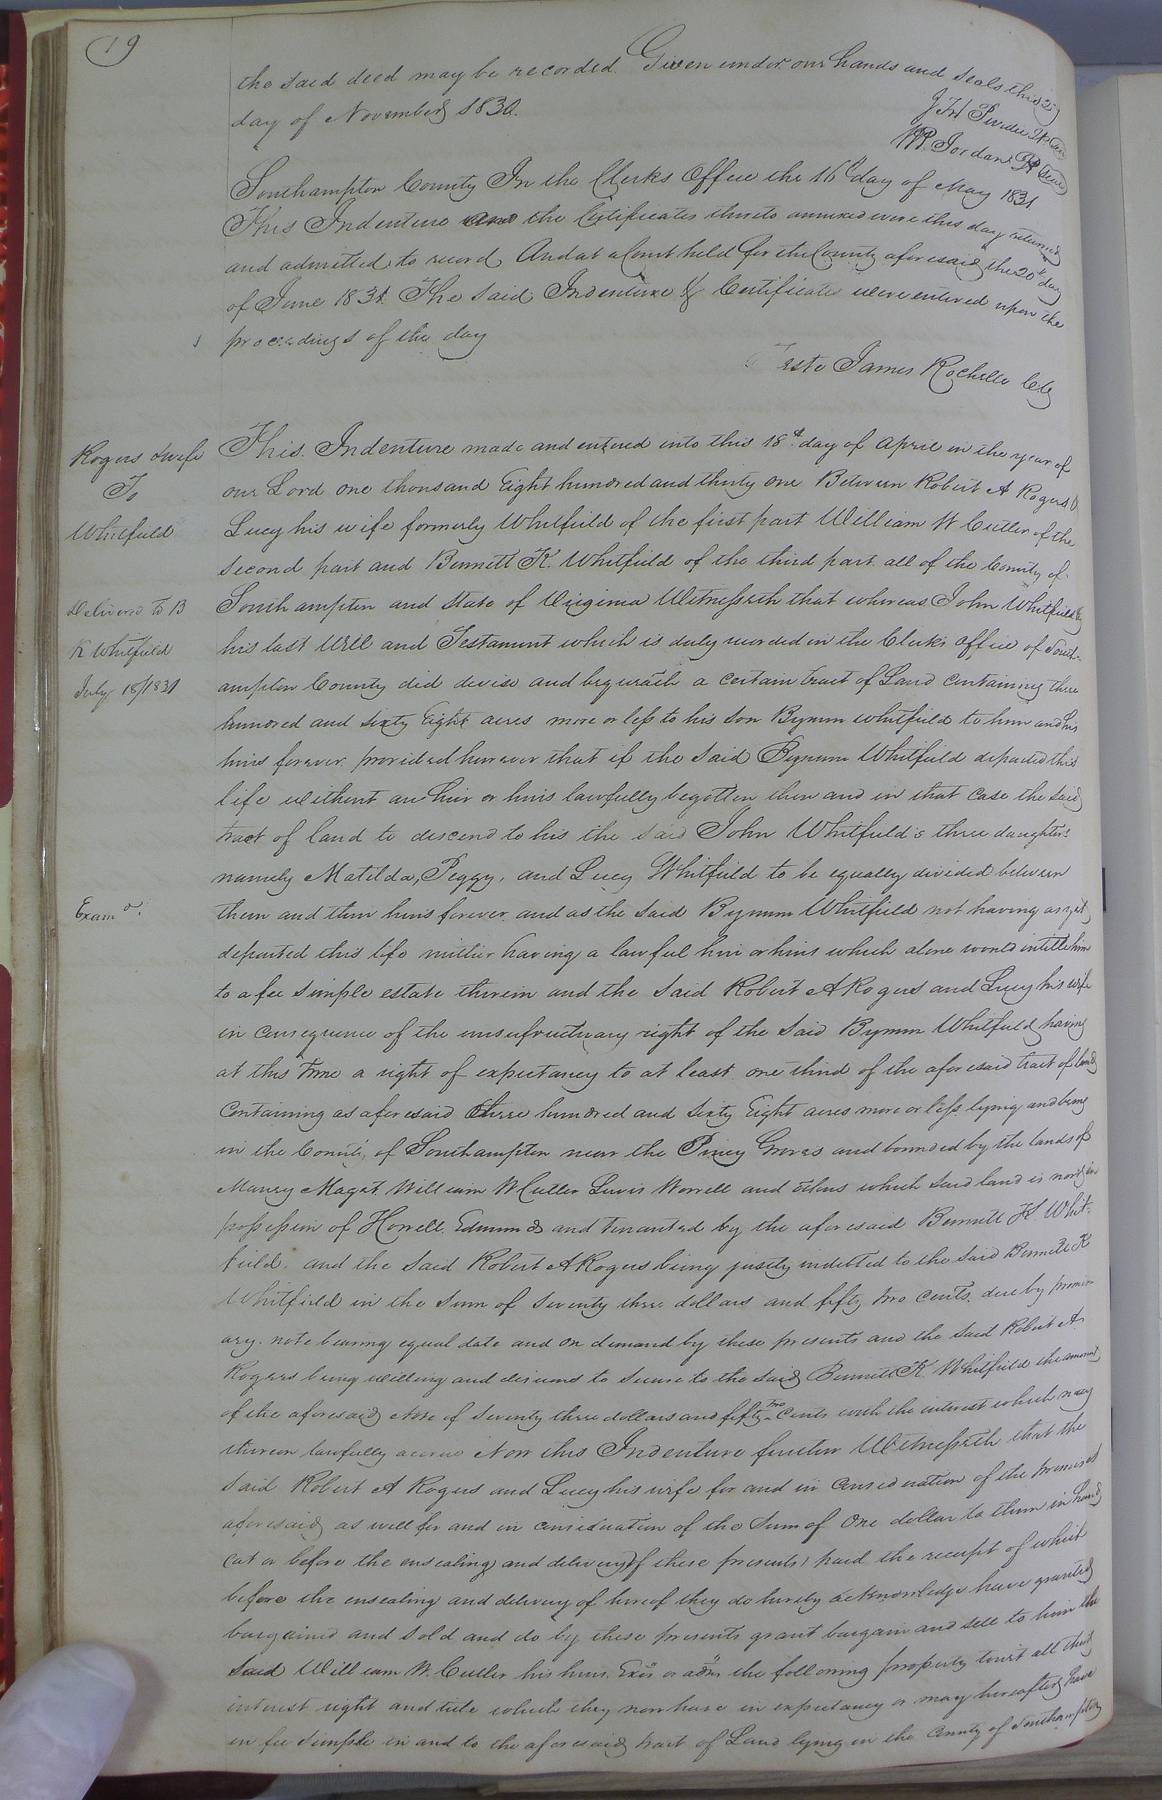 19
the said deed may be recorded. Given under our hands and seals this
day of November 1830.
J W Purdie JP Seal
W. Jordan JP Seal
Southampton County In the Clerks Office the 16th day of May 1831
This Indenture and the Certificates thereto annexed were this day returned
and admitted to record And at a Court held for the County aforesaid the 20th day
of June 1831. The said Indenture & Certificates were entered upon the
proceedings of the day
Teste James Rochelle Clk
Rogers & wife
To
Whitfield
Delivered to B
K Whitfield
July 18/1831
Exam d.
This Indenture made and entered into this 18th day of April in the year of
our Lord one thousand Eight hundred and thirty one Between Robert A Rogers &
Lucy his wife formerly Whitfield of the first part William W Cutler of the
second part and Bennett K. Whitfield of the third part all of the County of
Southampton and State of Virginia Witnesseth that whereas John Whitfield by
his last Will and Testament which is duly recorded in the Clerks office of South-
ampton County did devise and bequeath a certain tract of Land containing three
hundred and sixty Eight acres more or less to his son Bynum Whitfield to him and his
heirs forever. provided however that if the said Bynum Whitfield departed this
life without an heir or heirs lawfully begotten then and in that case the said
tract of land to descend to his the said John Whitfield's three daughters
namely Matilda, Peggy, and Lucy Whitfield to be equally divided between
them and their heirs forever and as the said Bynum Whitfield not having as yet
departed this life neither having a lawful heir or heirs which alone would intitle him
to a fee simple estate therein and the said Robert A Rogers and Lucy his wife
in consequence of the unsufructuary right of the said Bynum Whitfield having
at this time a right of expectancy to at least one third of the aforesaid tract of land
containing as aforesaid three hundred and sixty Eight acres more or less lying and being
in the County of Southampton near the Piney Groves and bounded by the lands of
Maney Maget, William W Cutler Lewis Worrell and others which said land is now in
possession of Howell Edmunds and tenanted by the aforesaid Bennett K Whit-
field. and the said Robert A Rogers being justly indebted to the said Bennett K
Whitfield in the sum of seventy three dollars and fifty two cents. due by promis-
ary. note bearing equal date and on demand by these presents and the said Robert A
Rogers being willing and desirous to secure to the said Bennett K. Whitfield the amount
of the aforesaid Note of seventy three dollars and fifty two Cents with the interest which may
thereon lawfully accrue Now this Indenture further Witnesseth that the
said Robert A Rogers and Lucy his wife for and in consideration of the premises
aforesaid, as well for and in consideration of the sum of One dollar to them in hand
(at or before the ensealing and delivery of these presents) paid the receipt of which
before the ensealing and delivery of hereof they do hereby acknowledge have granted
bargained and sold and do by these presents grant bargain and sell to him the
said William W. Cutler his heirs Exors or adms the following property towit all that
interest right and title which they now have in expectancy or may hereafter have
in fee simple in and to the aforesaid tract of Land lying in the County of Southampton